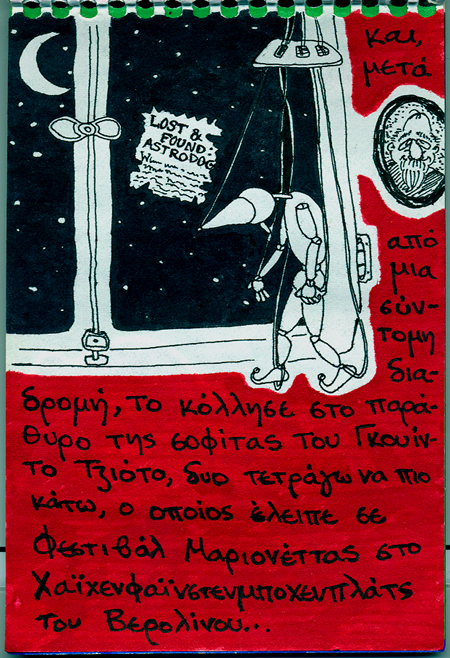 και,
μετά
LOST &
FOUND:
ASTRODOG
από
μια
σύν-
τομη
δια-
δρομή, το κόλλησε στο παρά-
θυρο της σοφίτας του Γκουίν-
το Τζιότο, δυο τετράγωνα πιο
κάτω, ο οποίος έλειπε σε
Φεστιβάλ Μαριονέττας στο
Χαϊχενφαϊνστενμποχενπλάτς
του Βερολίνου...